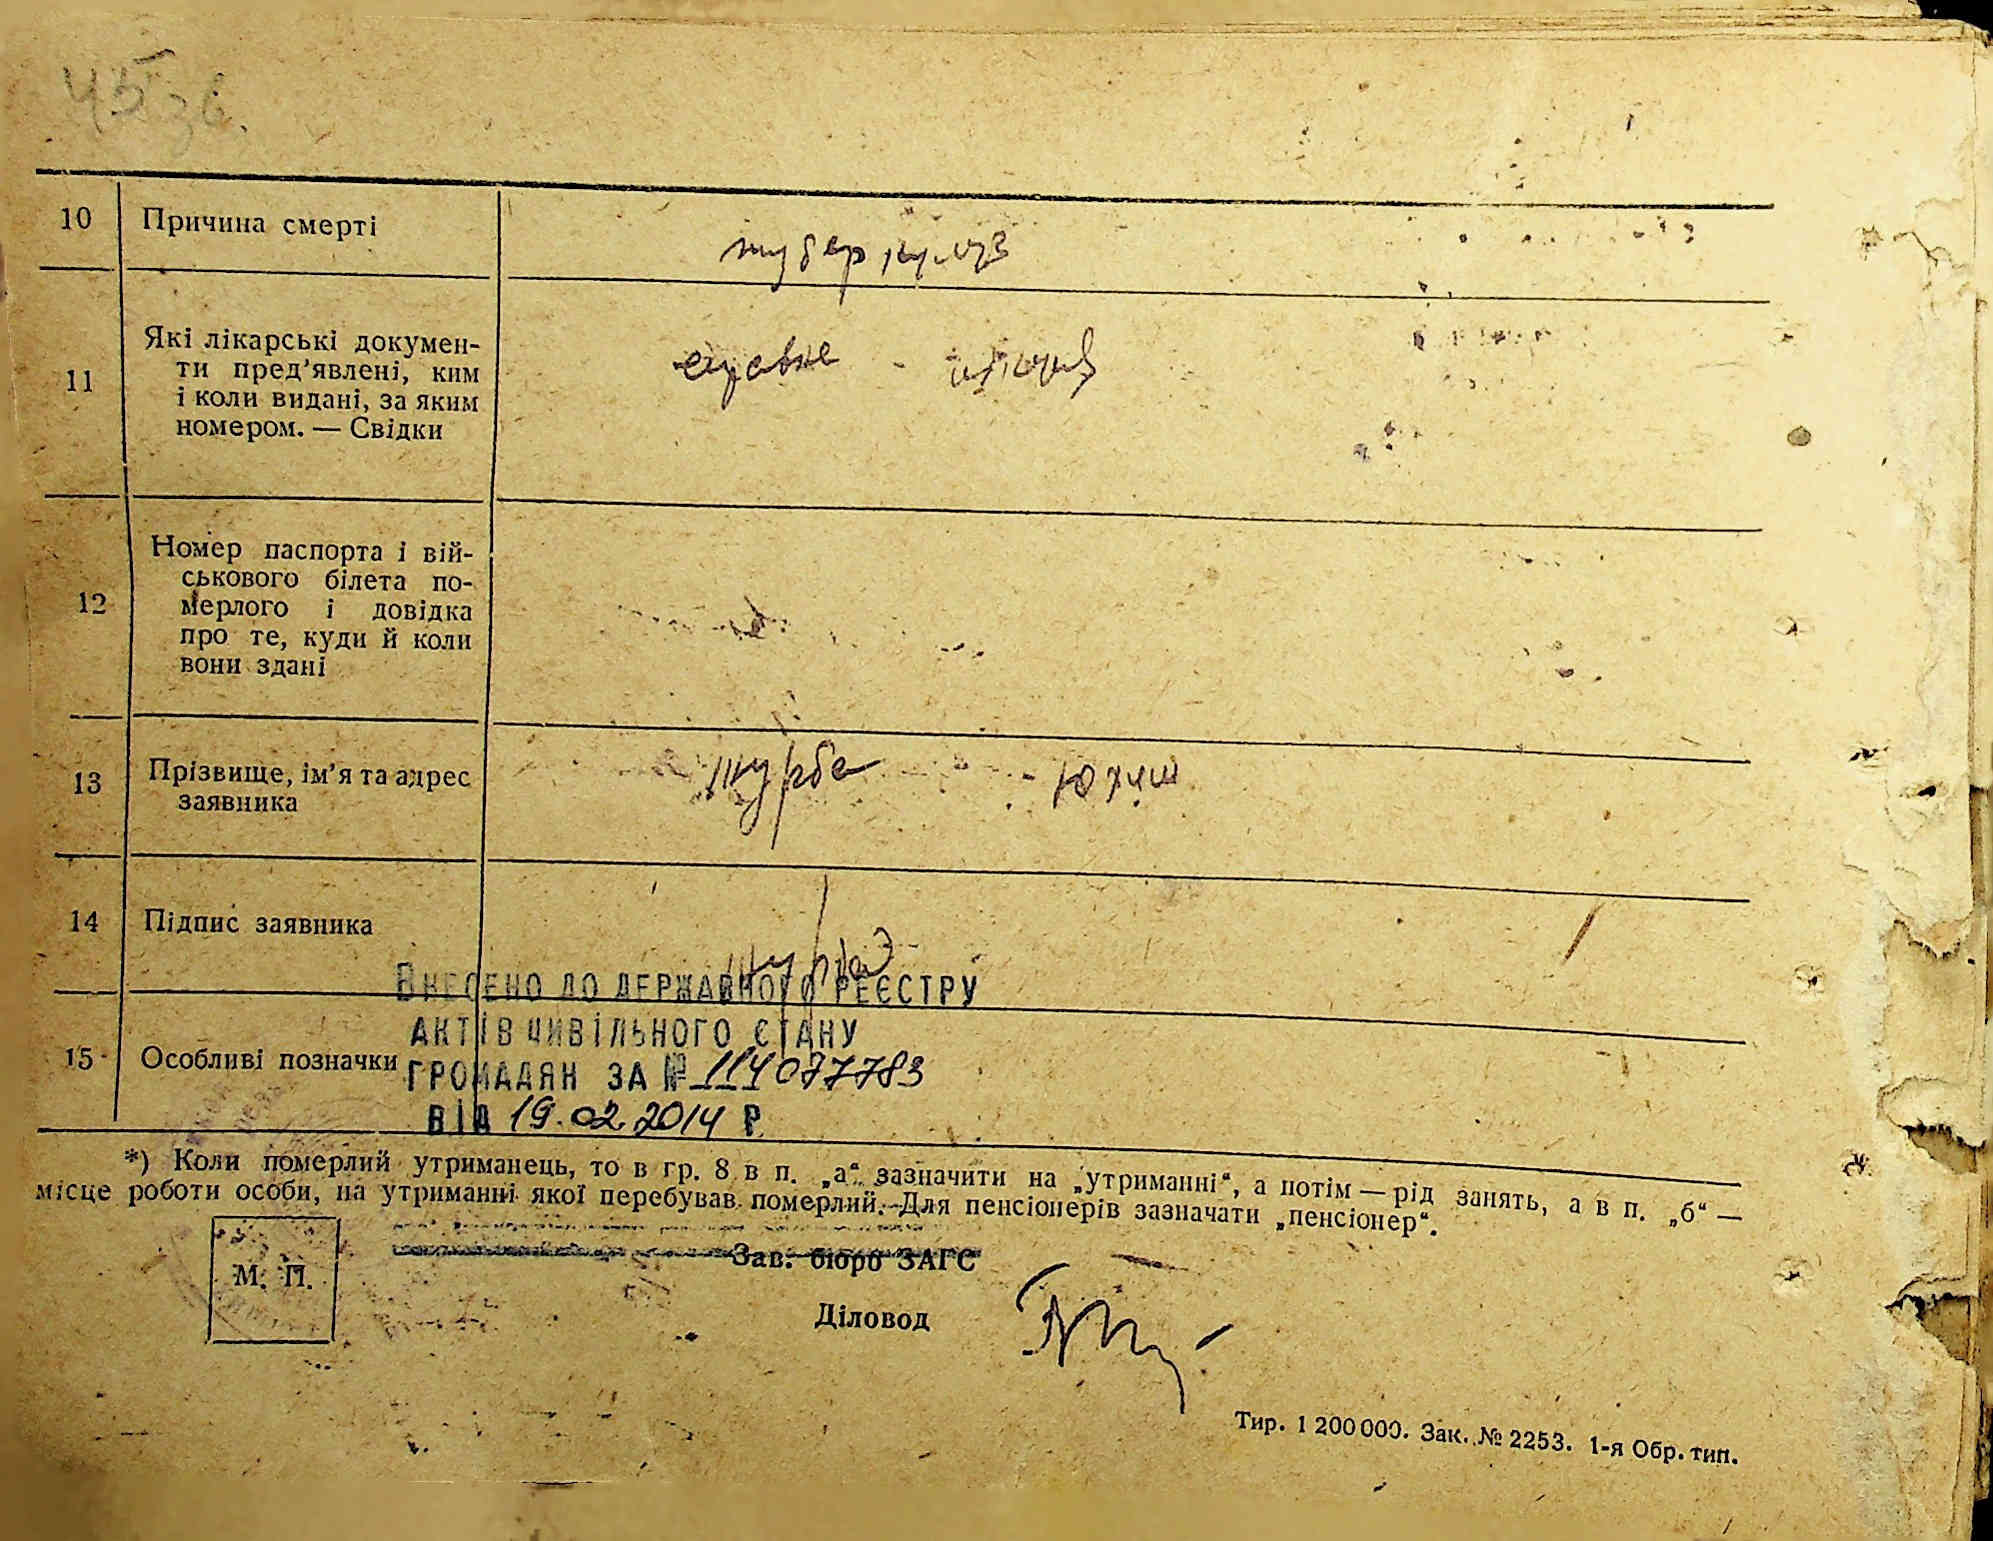 45 зв.
10 Причина смерті туберкульоз
11 Які лікарські докумен-
ти пред’явлені, ким
і коли видані, за яким
номером. — Свідки
12 Номер паспорта і вій-
ськового білета по-
мерлого і довідка
про те, куди й коли
вони здані
13 Прізвище, ім’я та адрес Шурба Юхим
заявника
14 Підпис заявника
ВНЕСЕНО ДО ДЕРЖАВНОГО РЕЄСТРУ
АКТІВ ЦИВІЛЬНОГО СТАНУ
15 Особливі позначки ГРОМАДЯН ЗА № 114077783
ВІД 19.02.2014 Р.
*) Коли померлий утриманець, то в гр. 8 в п. „а“ зазначити на „утриманні“, а потім — рід занять, а в п. „б“ —
місце роботи особи, на утриманні якої перебував померлий. Для пенсіонерів зазначати „пенсіонер“.
Зав. бюро ЗАГС
М. П.
Діловод
Тир. 1 200 000. Зак. № 2253. 1-я Обр. тип.